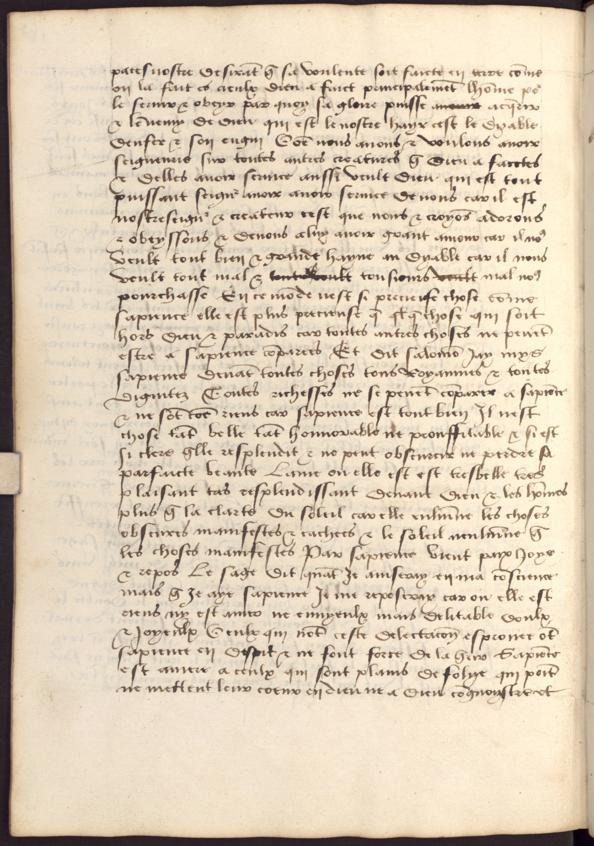 paces nostre desirāt q̄ sa voulente soit faicte en terre cōme
on la fait es cieulx dieu a faict principalemēt lhōme po
le servir & obeyr par quoy sa gloire puisse acq̄rir
& lēnemy de dieu qui est le nostre hayr cest le dyable
denfer & son engin Sōe nous avons & voulons avoir
seigneurie sur toutes autres creatures q̄ dieu a faictes
& delles avoir service aussi veult dieu qui est tout
puissant seign͛ avoir avoir service de nous car il est
nostre seign͛ & createur cest que nous & croyōs adorons
& obeyssons & devons a luy avoir grant amour car il no9
veult tout bien & grande hayne au dyable car il nous
veult tout mal & tousiours mal no9
pourchasse En ce mōde nest si precieuse chose cōme
sapience elle est plus precieuse q̄ q̄lq̄ chose qui soit
hors dieu & paradis car toutes autres choses ne pevēt
estre a sapience cōparees Et dit salomō Jay mys
sapience devāt toutes choses tous Royaumes & toutes
dignitez Toutes richesses ne se pevēt cōparer a sapiēce
& ne sōt riens car sapience est tout bien Il nest
chose tāt belle tāt honnorable ne prouffitable & si est
si clere q̄lle resplendit & ne peut obscurcir ne perdre sa
parfaicte beaute Lame ou elle est est tresbelle tres
plaisant tas resplendissant devant dieu & les hōmes
plus q̄ la clarte du soleil car elle enlumine les choses
obscures manifestes & cachees & le soleil nenlumine q̄
les choses manifestes Par sapience vient paix Joye
& repos Le sage dit quāt Je entreray en ma cōscience
mais q̄ Je aye sapience Je me reposeray car ou elle est
riens ny est amer ne ennyeulx mais delitable doulx
& Joyeulx Ceulx qui nōt ceste delectacion esprovee ōt
sapience en despit & ne font force de la Sapience
est amere a ceulx qui sont plains de folye qui point
ne mettent leur coeur en dieu ne a dieu cōgnoystre et